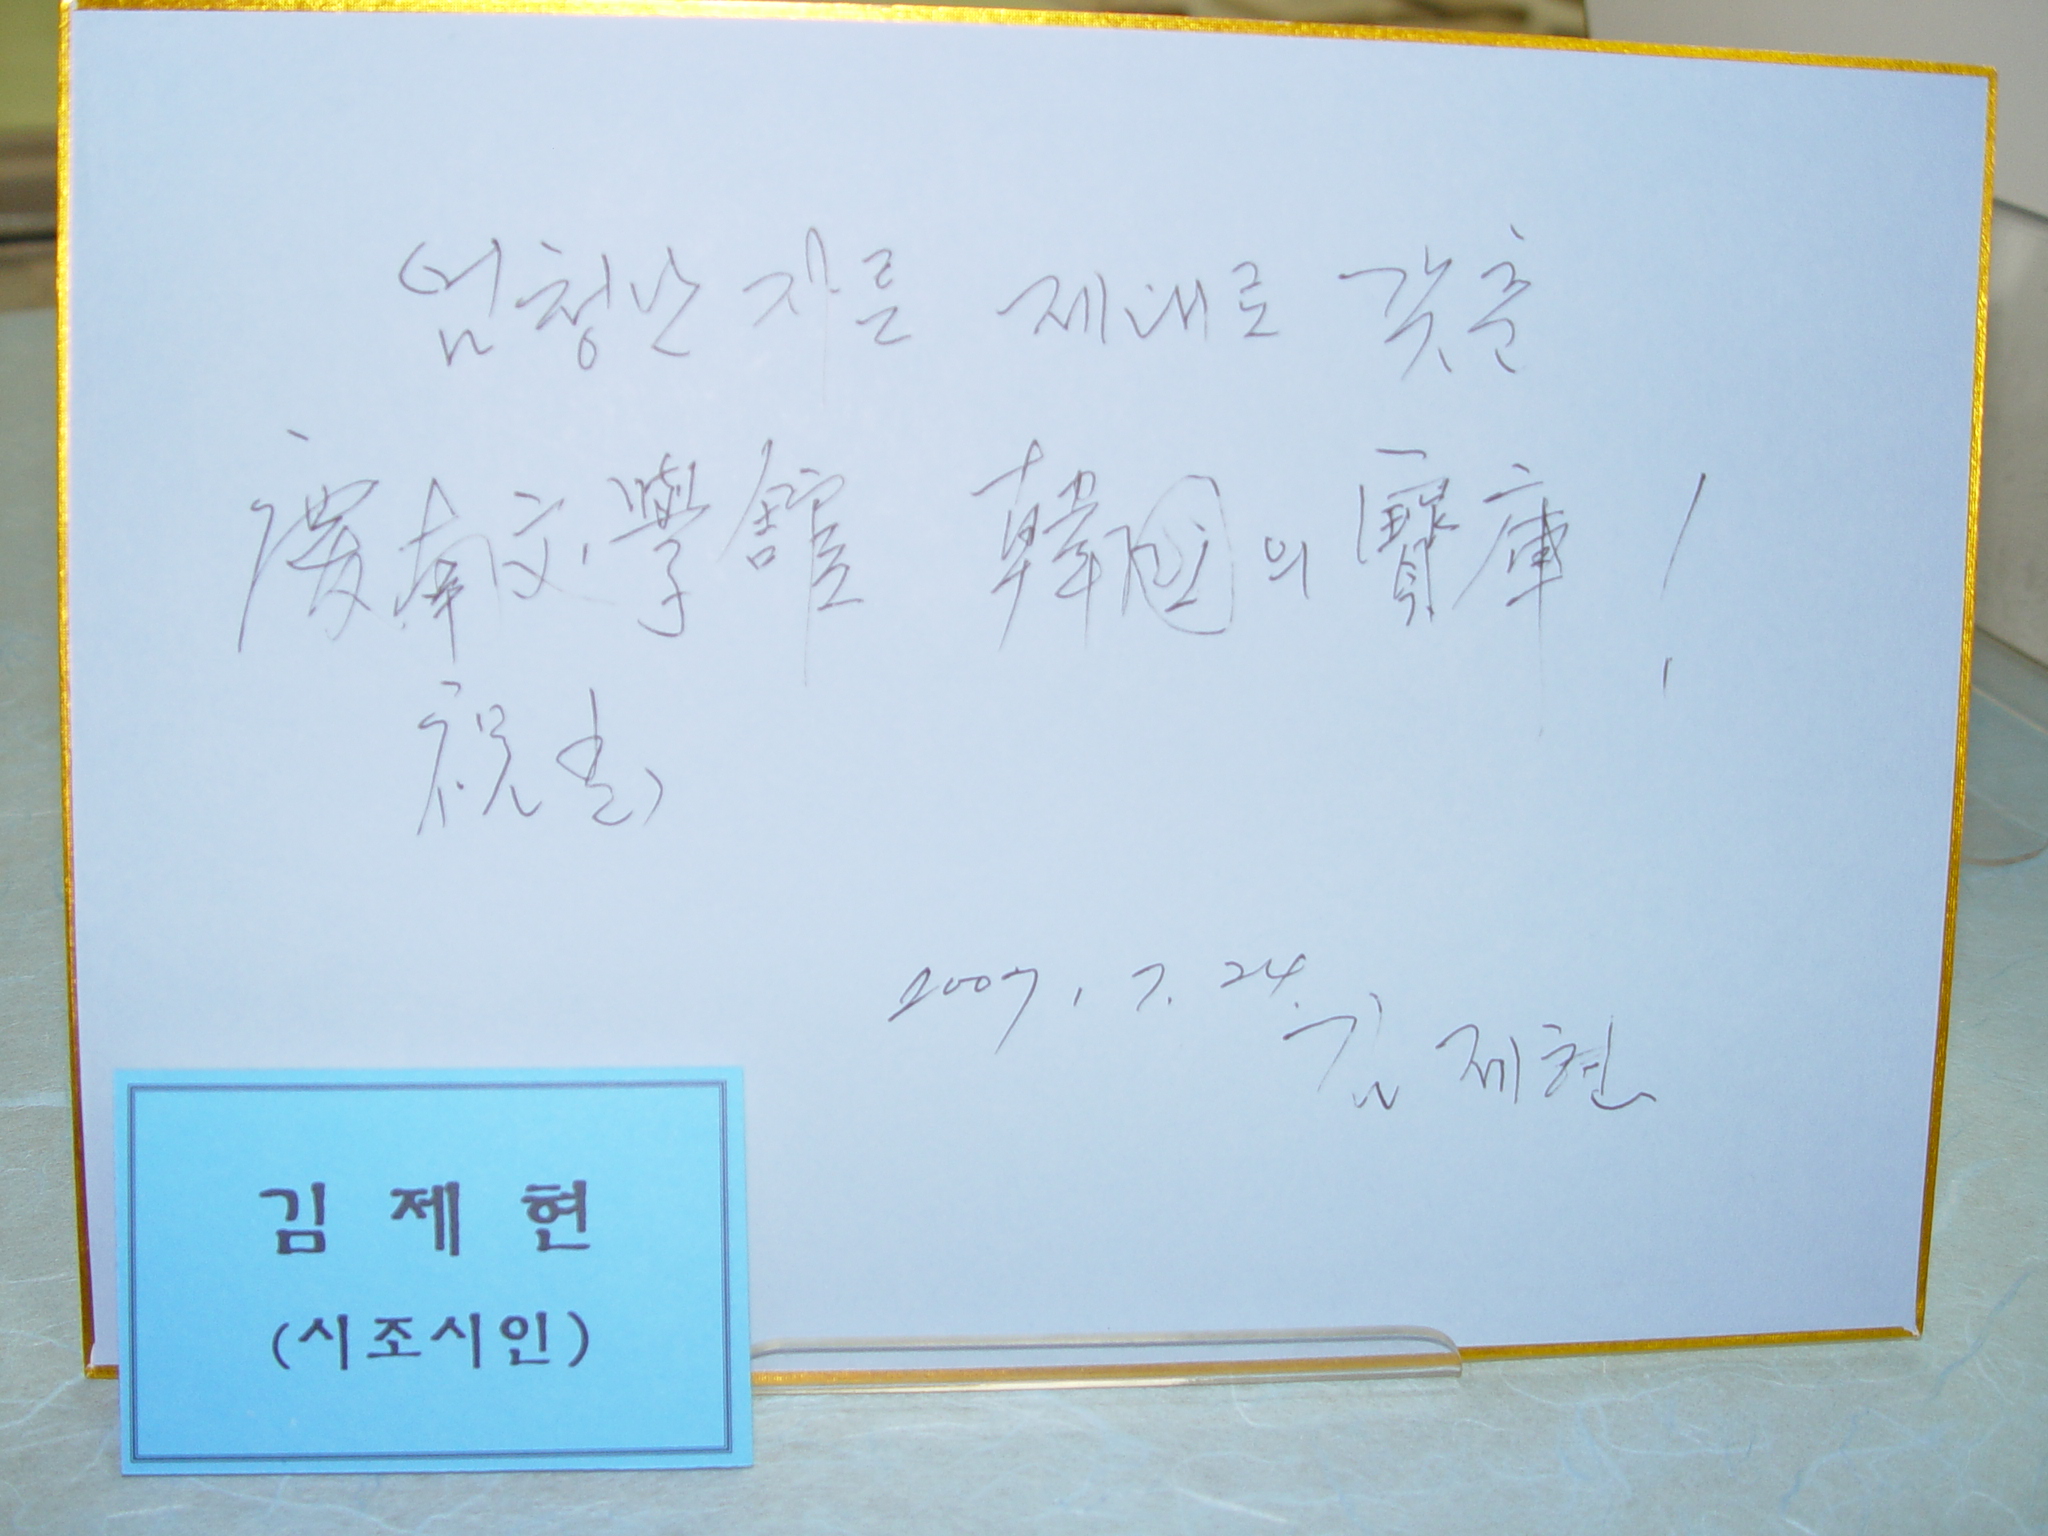 엄청난 자료 제대로 갖춘
慶南文學館 韓國의 寶庫!
祝
2007. 7. 24.
김제현
김 제 현
(시조시인)